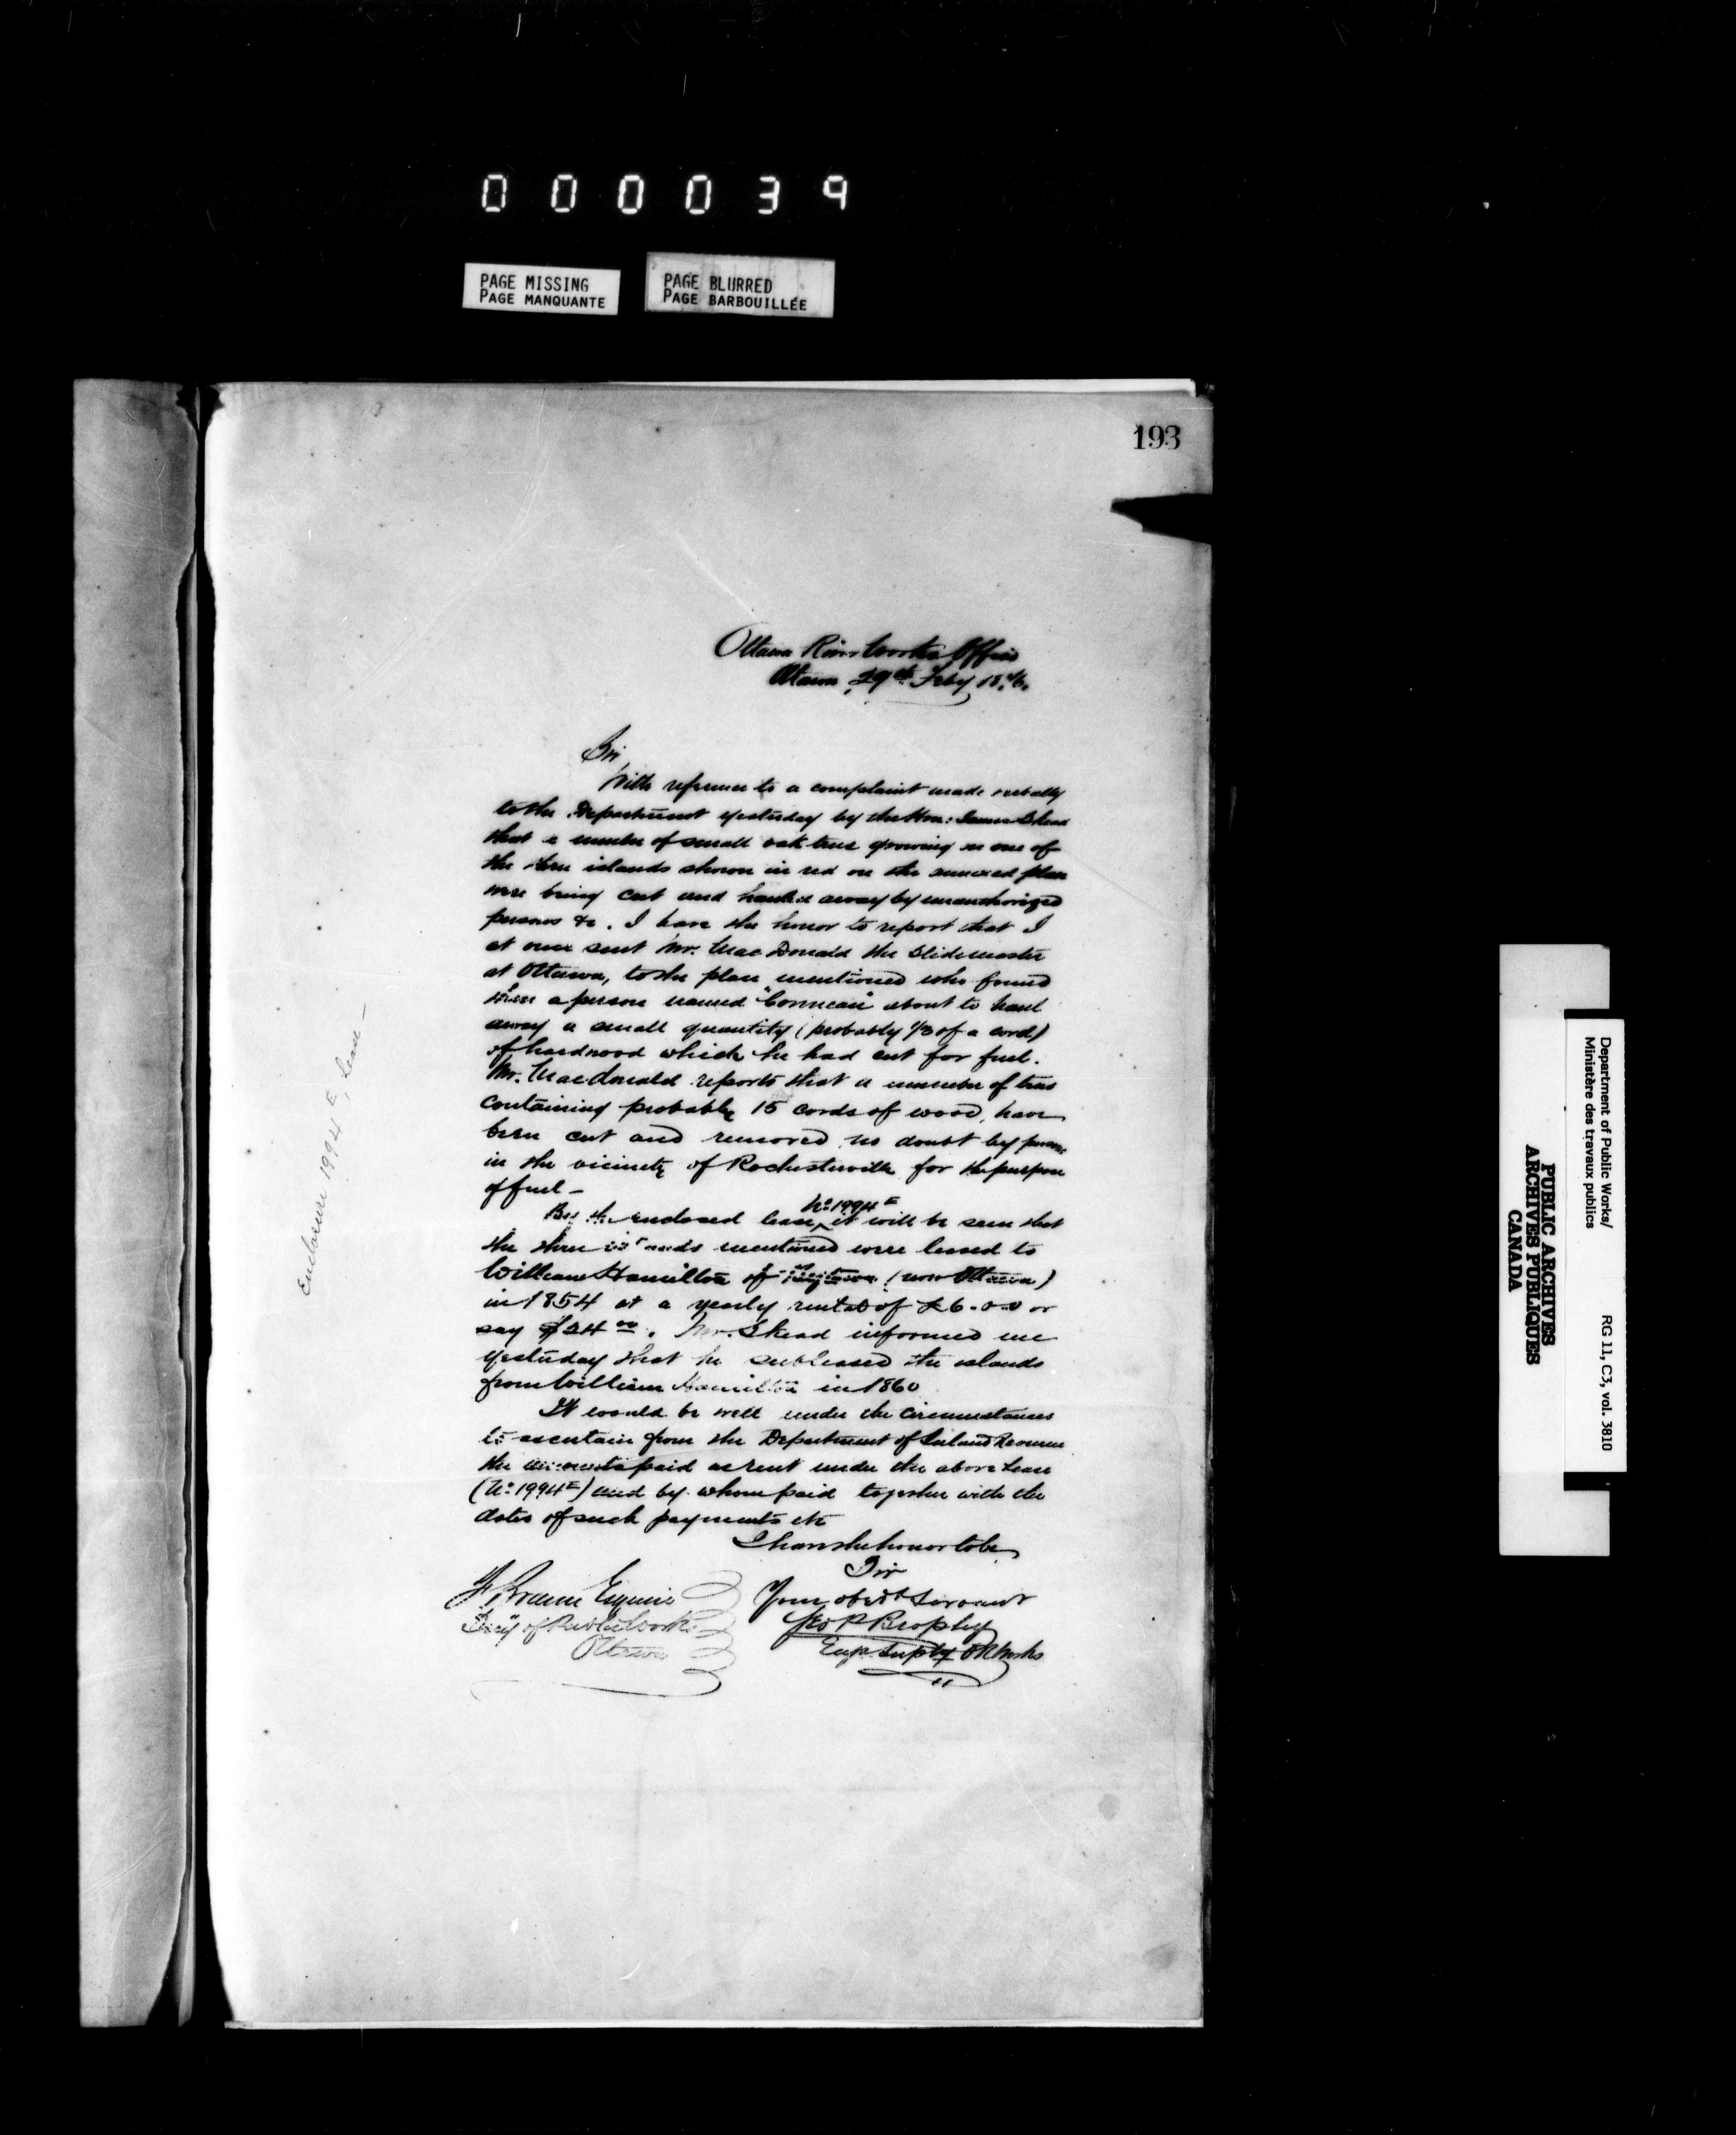 000039
PAGE MISSING
PAGE MANQUANTE
PAGE BLURRED
PAGE BARBOUILLÉE
193
Ottawa River Works Office
Ottawa, 29th Feby 1876.
Sir,
With reference to a complaint made verbally
to the Department yesterday by the Hon: James Skead
that a number of small oak trees growing on one of
the three islands shown in red on the annexed plan
were being cut and hauled away by unauthorized
persons &c. I have the honor to report that I
at once sent Mr. MacDonald the Slidemaster
at Ottawa, to the place mentioned who found
there a person named "Corneau" about to haul
away a small quantity (probably 1/3 of a cord)
of hardwood which he had cut for fuel.
Mr. MacDonald reports that a number of trees
containing probably 15 cords of wood, have
been cut and removed no doubt by persons
in the vicinity of Rochesterville for the purpose
of fuel —
By the enclosed lease, No 1994E it will be seen that
the three islands mentioned were leased to
William Hamilton of Bytown (now Ottawa)
in 1854 at a yearly rental of £6.0.0 or
say $24 00. Mr. Skead informed me
yesterday that he subleased the islands
from William Hamilton in 1860
It would be well under the circumstances
to ascertain from the Department of Inland Revenue
the amounts paid as rent under the above Lease
(No 1994E) and by whom paid together with the
dates of such payments etc
I have the honor to be
Sir
Your obedt Servant
Geo P Brophy
Eng Supt O R Works
F. Braun Esquire
Secy of Public Works
Ottawa
Enclosure 1994 E, Lease —
Department of Public Works/
Ministère des travaux publics
RG 11, C3, vol. 3810
PUBLIC ARCHIVES
ARCHIVES PUBLIQUES
CANADA